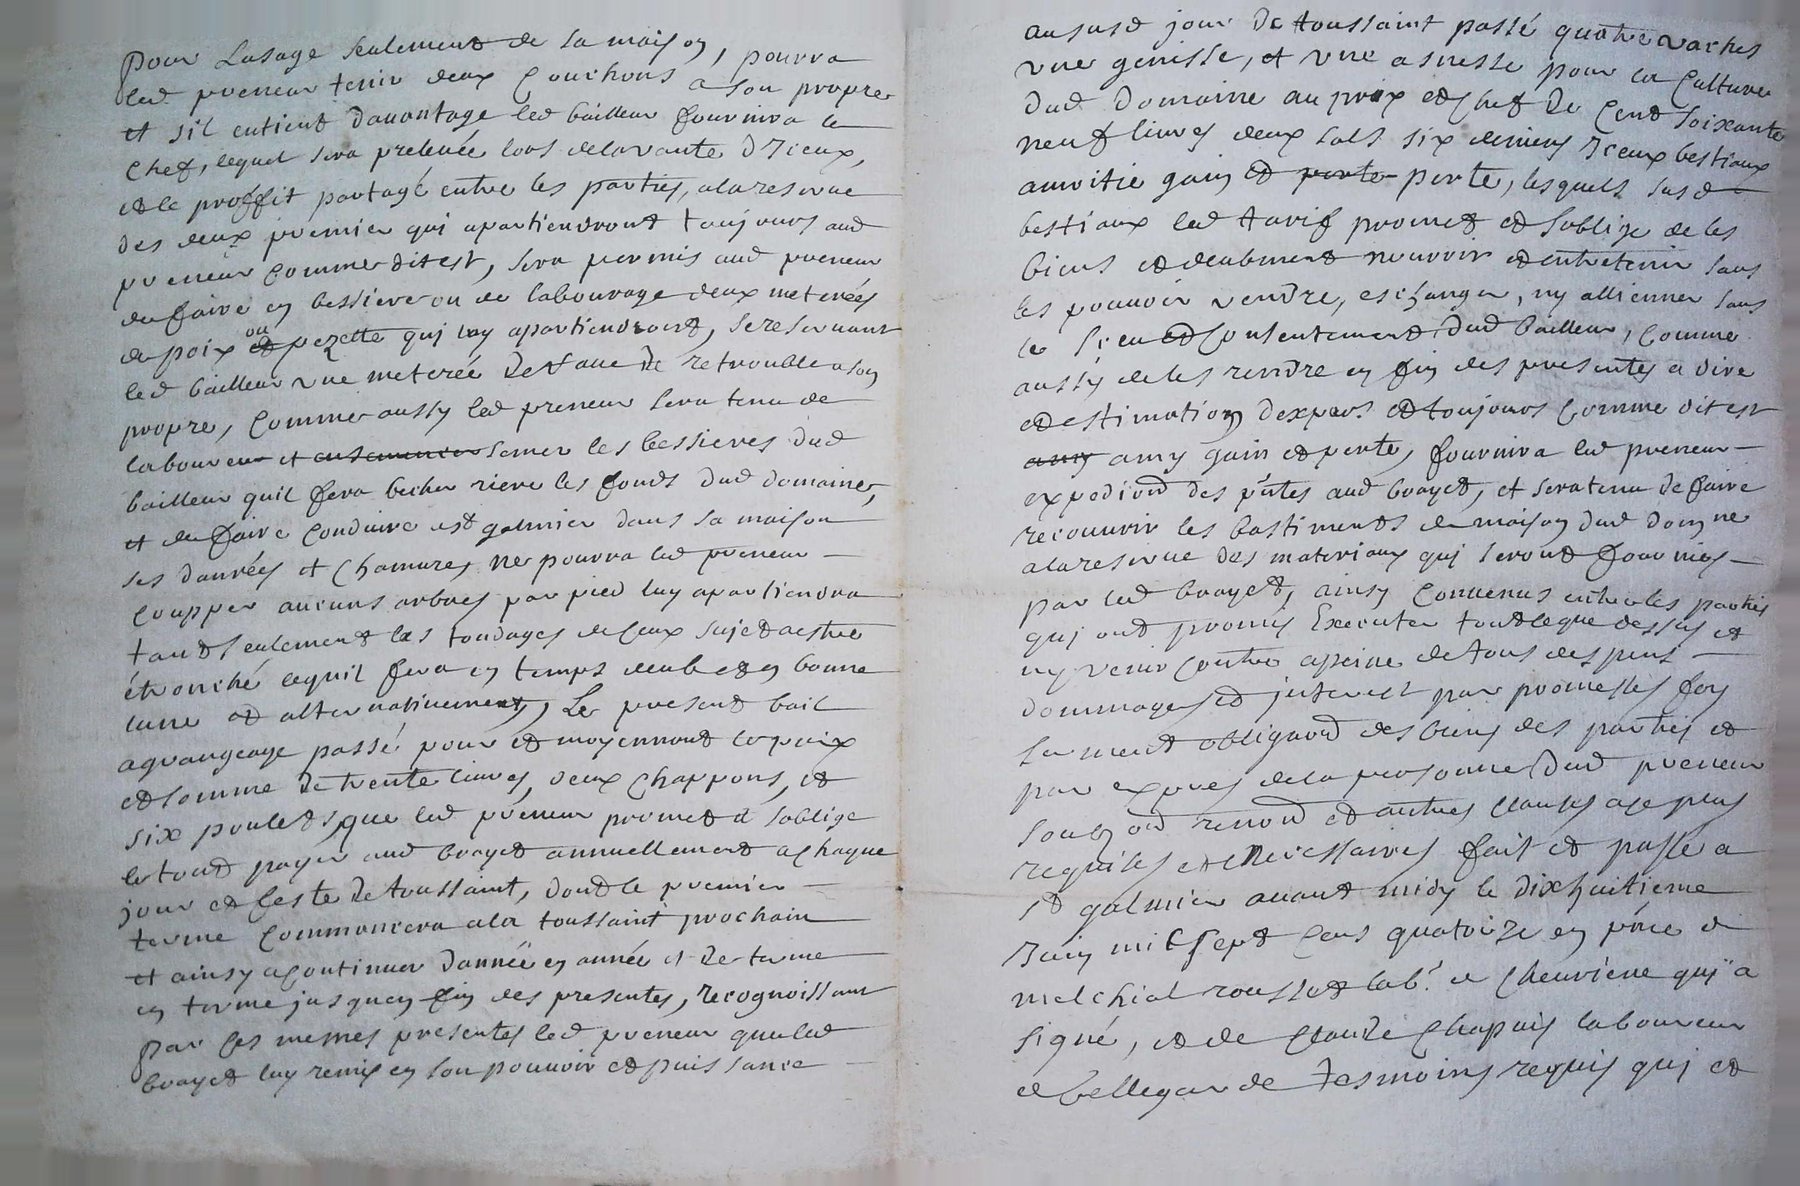 pour lusage seulement de sa maison, pourra
led preneur tenir deux couchons a son propre
et sil entient dauantage led bailleur fournira le
chet, lequel sera preleuée lors delavante d'Iceux,
et le proffit partagé entre les parties, alareserue
des deux premier qui apartiendront toujours aud
preneur comme dit est, sera permis aud preneur
de faire en bessiere ou de labourage deux meterées
de poix ou pezette qui luy apartiendront, se reseruant
led bailleur vne meterée de raue de retrouble a son
propre, comme aussy led preneur sera tenu de
labourer et ensemencer semer les bessieres dud
bailleur quil fera becher riere les fonds dud domaine,
et de faire conduire a st galmier dans sa maison
ses danrées et chamures, ne pourra led preneur
coupper aucuns arbres par pied luy apartiendra
tant seulement les tondages de ceux sujet a estre
étronché cequil fera en temps deub et en bonne
lune et alternatiuement, Le present bail
agrangeage passé pour et moyennant le prix
et somme de trente liures, deux chappons, et
six poulets, que led preneur promet et soblige
le tout payer aud brayet annuellement achaque
jour et feste de toussaint, dont le premier
terme commancera ala toussaint prochain
et ainsy acontinuer dannée en année et de terme
en terme jusquen fin des presentes, recognoissant
par ses memes presentes led preneur queled
brayet luy remix en son pouuoir et puissance
aususd jour de toussaint passé quatre vaches
vne genisse, et vne asnesse pour la culture
dud domaine au prix et chet de cent soixante
neuf liures deux sols six deniers Iceux bestiaux
amoitie gain et perte perte, lesquels susd
bestiaux led tarif promet et soblige de les
biens et deubment nourrir et entretenir sans
les pouuoir vendre, eschanger, ny allienner sans
le sceu et consentement dud bailleur, comme
aussy de les rendre en fin des presentes a dire
et estimation dexpers et toujours comme dit est
amy amy gain et perte, fournira led preneur
expedion des pntes aud brayet, et sera tenu de faire
recouurir les bastiments de maison dud domne
alareserue des materiaux qui seront fournies
par led brayet, ainsy conuenus entre les parties
qui ont promis Executer tout ceque dessus et
ny venir contre apeine de tous despens
dommages et interest par promesses foy
serment obligaon des biens des parties et
par expres dela personne dud preneur
soubz on renon et autres clauses ace plus
requises et Necessaires fait et passé a
st galmier auant midy le dixhuitieme
Juin mil sept cens quatorze en pnce de
melchiol rousset lab.r de cheuriere quy a
signé, et de claude chapuis laboureur
de bellegarde tesmoins requis qui et